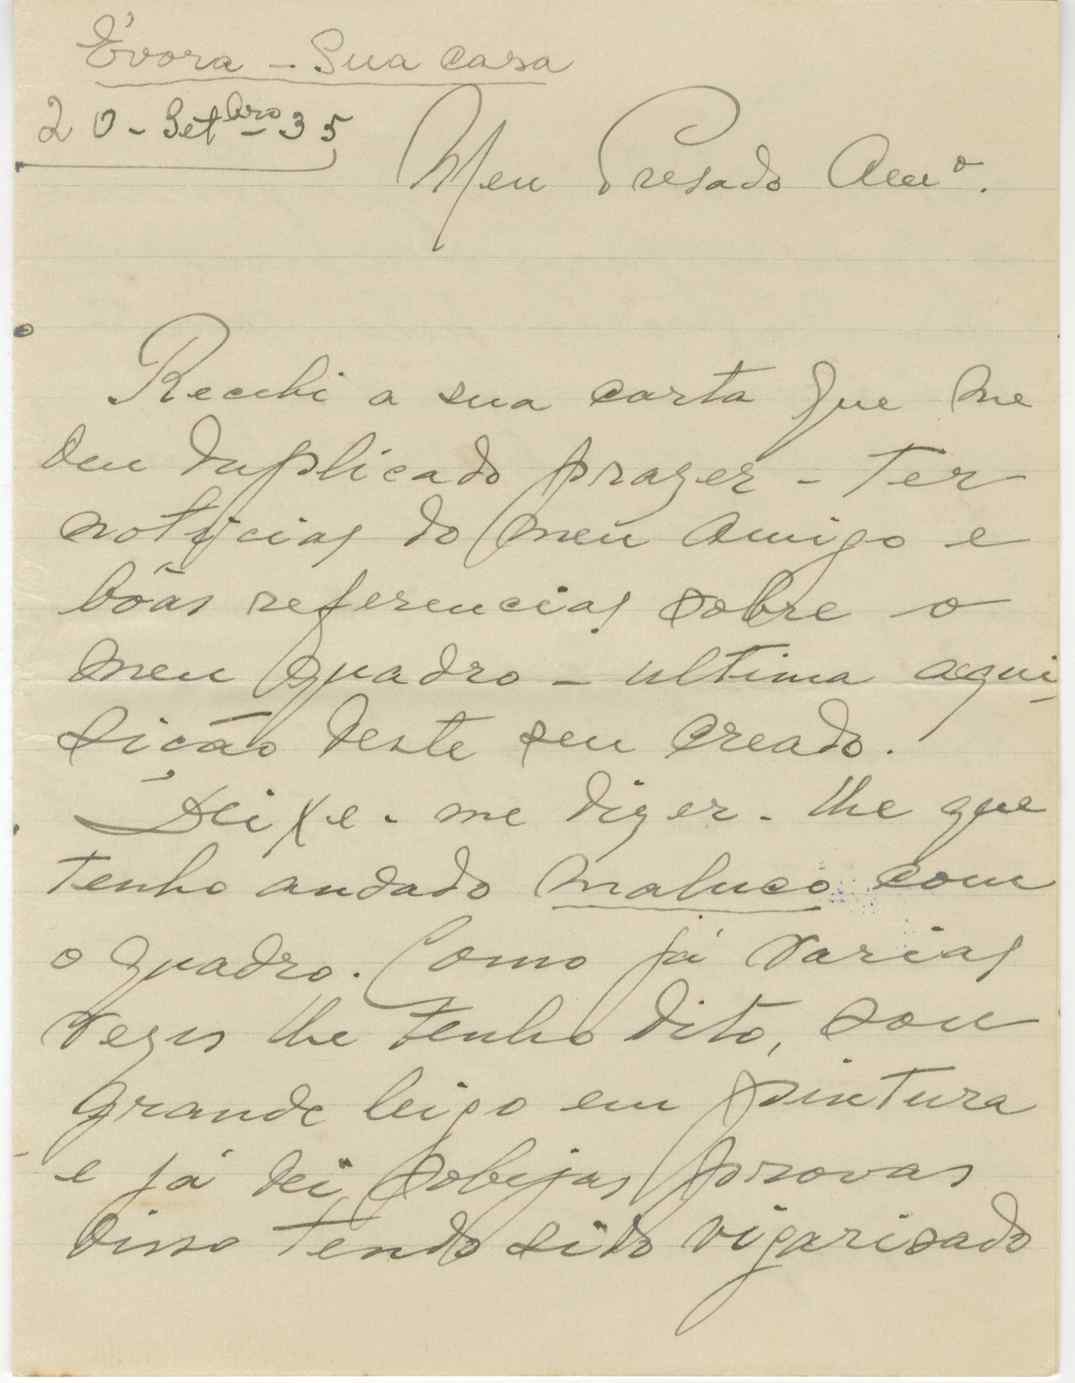 Évora - Sua casa
20 - Setbro - 35
Meu Presado Amº.
Recebi a sua carta que me
deu duplicado prazer - ter
noticias do meu amigo e
bôas referencias sobre o
meu quadro - ultima aqui-
sicão deste seu creado.
Deixe-me dizer-lhe que
tenho andado maluco com
o quadro. Como já varias
vezes lhe tenho dito, sou
grande leigo em pintura
e já dei sobejas provas
disso tendo sido vigarisado